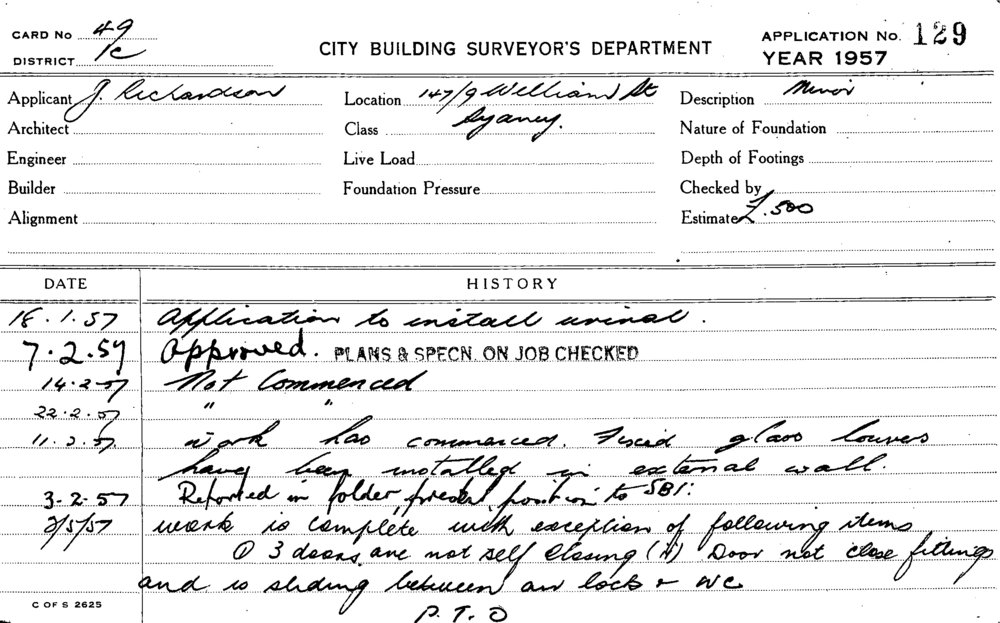 CARD No 49
DISTRICT 1c
CITY BUILDING SURVEYOR'S DEPARTMENT
APPLICATION No. 129
YEAR 1957
Applicant J. Richardson
Location 147/9 William St
Description Minor
Architect
Class Sydney.
Nature of Foundation
Engineer
Live Load
Depth of Footings
Builder
Foundation Pressure
Checked by
Alignment
Estimate £.500
DATE HISTORY
18.1.57 Application to install urinal.
7.2.57 Approved. PLANS & SPECN. ON JOB CHECKED
14.2.57 Not Commenced
22.2.57 " "
11.3.57 work has commenced. Fixed glass louvres
have been installed in external wall.
3-2-57 Reported in folder present position to SBI.
2/5/57 work is complete with exception of following items
① 3 doors are not self closing (4) Door not close fittings
and is sliding between air lock & WC
P.T.O
C OF S 2625